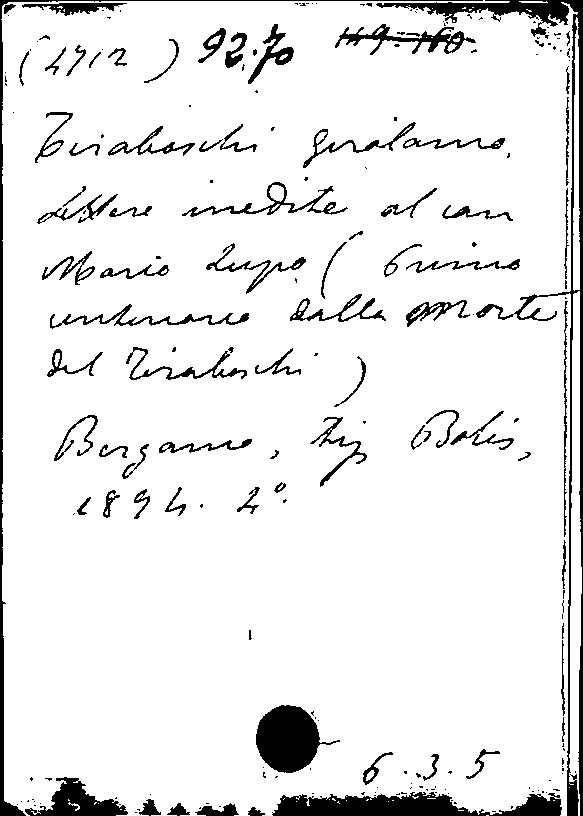 (4712) 92.70 149.160.
Tiraboschi Gerolamo.
Lettere inedite al can
Mario Lupo (Primo
centenario dalla morte
del Tiraboschi)
Bergamo, Tip Bolis,
1894. 4°.
6.3.5